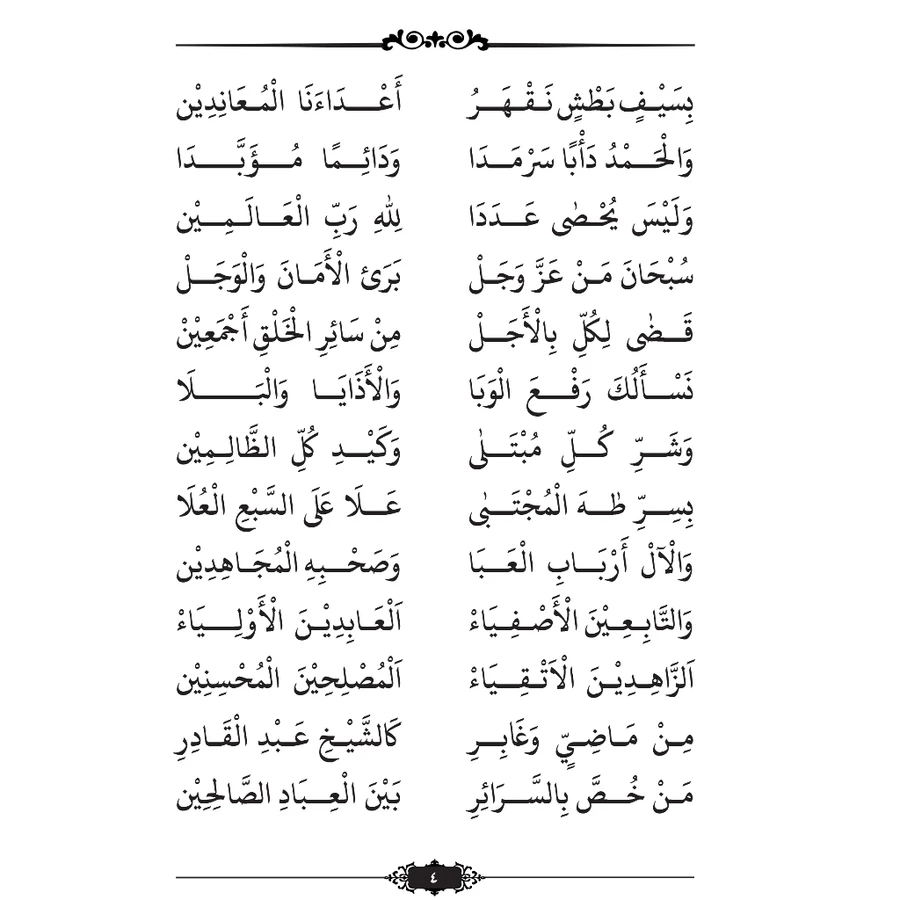 بِسَيْفٍ بَطْشٍ نَقْهَرُ أَعْدَاءَنَا الْمُعَانِدِيْن
وَالْحَمْدُ دَأْبًا سَرْمَدَا وَدَائِمًا مُؤَبَّدَا
وَلَيْسَ يُحْصٰى عَدَدَا لِلّٰهِ رَبِّ الْعَالَمِيْن
سُبْحَانَ مَنْ عَزَّ وَجَلْ بَرَئ الْأَمَانَ وَالْوَجَلْ
قَضٰى لِكُلِّ بِالْأَجَلْ مِنْ سَائِرِ الْخَلْقِ أَجْمَعِيْنْ
نَسْأَلُكَ رَفْعَ الْوَبَا وَالْأَذَايَا وَالْبَلَا
وَشَرِّ كُلِّ مُبْتَلٰى وَكَيْدِ كُلِّ الظَّالِمِيْن
بِسِرِّ طٰهَ الْمُجْتَبٰى عَلَا عَلَى السَّبْعِ الْعُلَا
وَالْآلْ أَرْبَابِ الْعَبَا وَصَحْبِهِ الْمُجَاهِدِيْن
وَالتَّابِعِيْنَ الْأَصْفِيَاءْ اَلْعَابِدِيْنَ الْأَوْلِيَاءْ
اَلزَّاهِدِيْنَ الْاَتْقِيَاءْ اَلْمُصْلِحِيْنَ الْمُحْسِنِيْن
مِنْ مَاضِيٍّ وَغَابِرِ كَالشَّيْخِ عَبْدِ الْقَادِرِ
مَنْ خُصَّ بِالسَّرَائِرِ بَيْنَ الْعِبَادِ الصَّالِحِيْن
٤